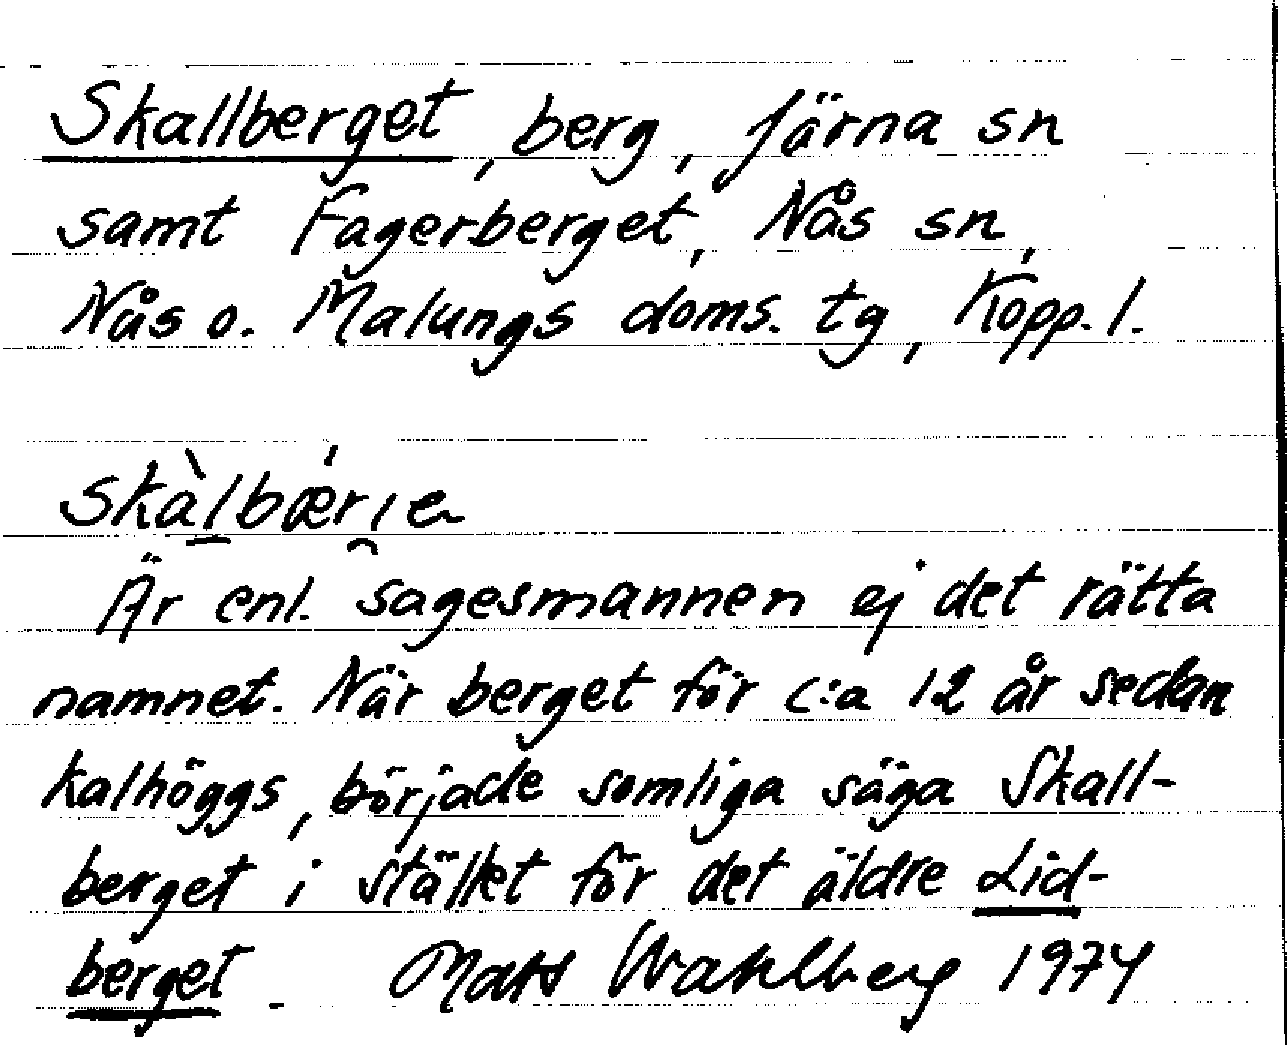 Skallberget, berg, Järna sn
samt Fagerberget, Nås sn,
Nås o. Malungs doms. tg, Kopp. l.
skàl̲bǽri̯e
Är enl. sagesmannen ej det rätta
namnet. När berget för c:a 12 år sedan
kalhöggs, började somliga säga Skall-
berget i stället för det äldre Lid-
berget. Mats Wahlberg 1974